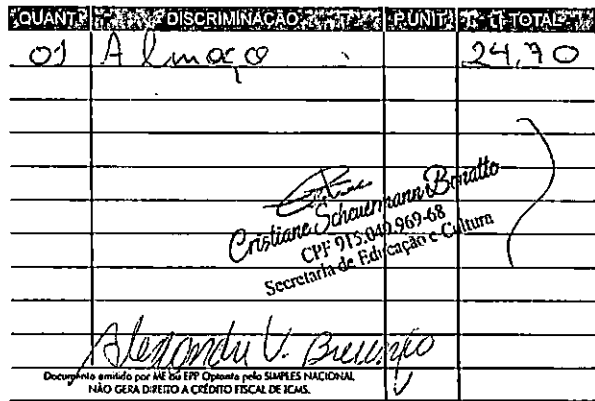 QUANT. DISCRIMINAÇÃO P.UNIT. TOTAL
01 Almoço 24,70
Cristiane Scheuermann Bonatto
CPF 915.049.969-68
Secretaria de Educação e Cultura
Alexandre V.
Documento emitido por ME ou EPP Optante pelo SIMPLES NACIONAL
NÃO GERA DIREITO A CRÉDITO FISCAL DE ICMS.